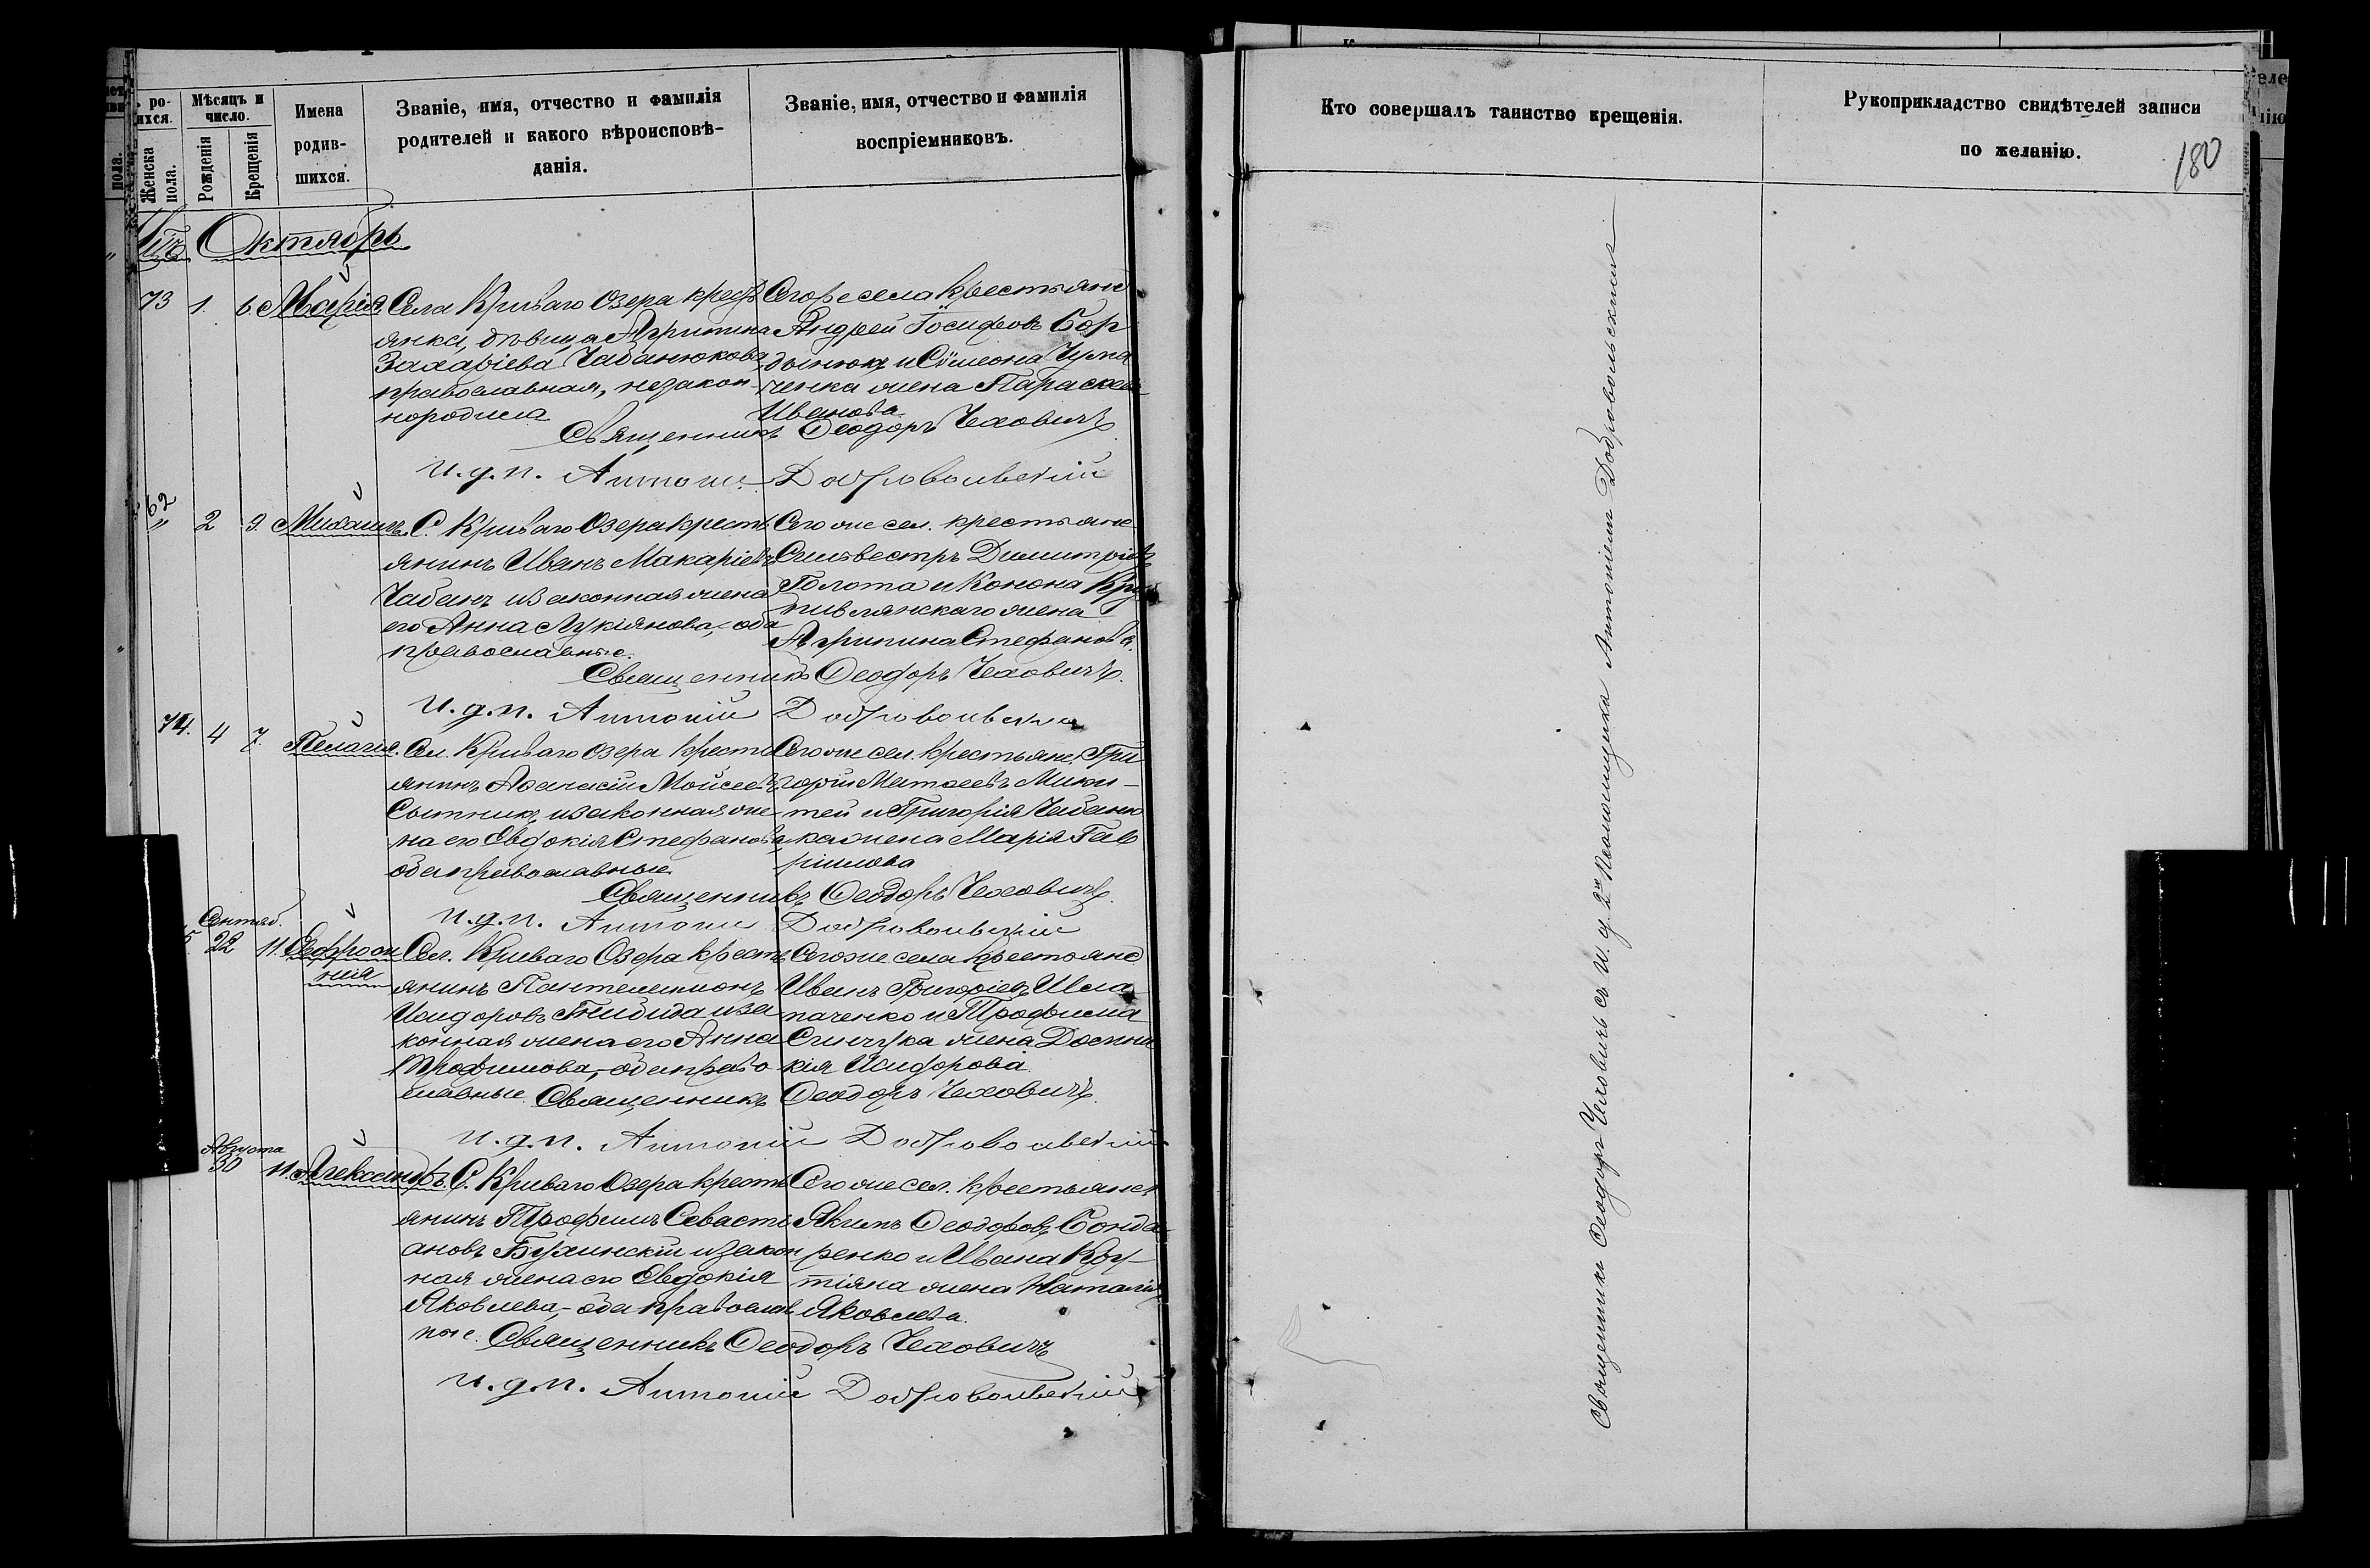 ро-
ихся.
Мѣсяцъ и
число.
Имена
родив-
шихся.
Званіе, имя, отчество и фамилія
родителей и какого вѣроисповѣ-
данія.
Званіе, имя, отчество и фамилія
воспріемниковъ.
Женска
пола.
Рожденія
Крещенія
Октябрь
73 1. 6. Марія
Села Криваго Озера крест
янка, дѣвица Агрипина
Захаріева Чабанюкова,
православная, незакон-
нородила
Сего же села крестьяне
Андрей Іосифовъ Бор
дынюкъ и Сѵмеона
ченка жена Параскева
Иванова
Священникъ Ѳеодоръ Чеховичъ
И. д. п. Антоній Добровольскій
62
" 2 9. Михаилъ.
С. Криваго Озера кресть
янинъ Иванъ Макаріевъ
Чабанъ и законная жена
его Анна Лукіянова, оба
православные.
Сего же сел. крестьяне
Сильвестръ Димитріевъ
Голота и Конона
жена
Агрипина Стефанова.
Священникъ Ѳеодоръ Чеховичъ.
И. д. п. Антоній Добровольскій
74. 4 7. Пелагія.
Сел. Криваго Озера кресть
янинъ Аѳанасій Мойсеевъ
Сытникъ и законная же
на его Евдокія Стефанова
оба православные.
Сего же сел. крестьяне, Гри
горій Матѳеевъ Мики-
тей и Григорія Чабаню
ка жена Марія Гав
ріилова
Священникъ Ѳеодоръ Чеховичъ.
И. д. п. Антоній Добровольскій
Сентяб.
22 11. Евфроси
нія
Сел. Криваго Озера кресть
янинъ Пантелеимонъ
Исидоровъ и за
конная жена его Анна
Трофимова, оба право
славные.
Сего же села крестьяне
Иванъ Григоріевъ
паченко и Трофима
жена Доски
кія Исидорова
Священникъ Ѳеодоръ Чеховичъ.
И. д. п. Антоній Добровольскій
Августа
30 11. Александръ.
С. Криваго Озера кресть
янинъ Трофимъ Севасті
ановъ и закон
ная жена его Евдокія
Яковлева, оба православ
ные.
Сего же сел. крестьяне:
Якимъ Ѳеодоровъ Бонда
ренко и Ивана Кру-
тіяна жена Наталія
Яковлева.
Священникъ Ѳеодоръ Чеховичъ
И. д. п. Антоній Добровольскій
Кто совершалъ таинство крещенія.
Рукоприкладство свидѣтелей записи
по желанію.
180
Священникъ Ѳеодоръ Чеховичъ съ И. д. 2го псаломщика Антоніемъ Добровольскимъ